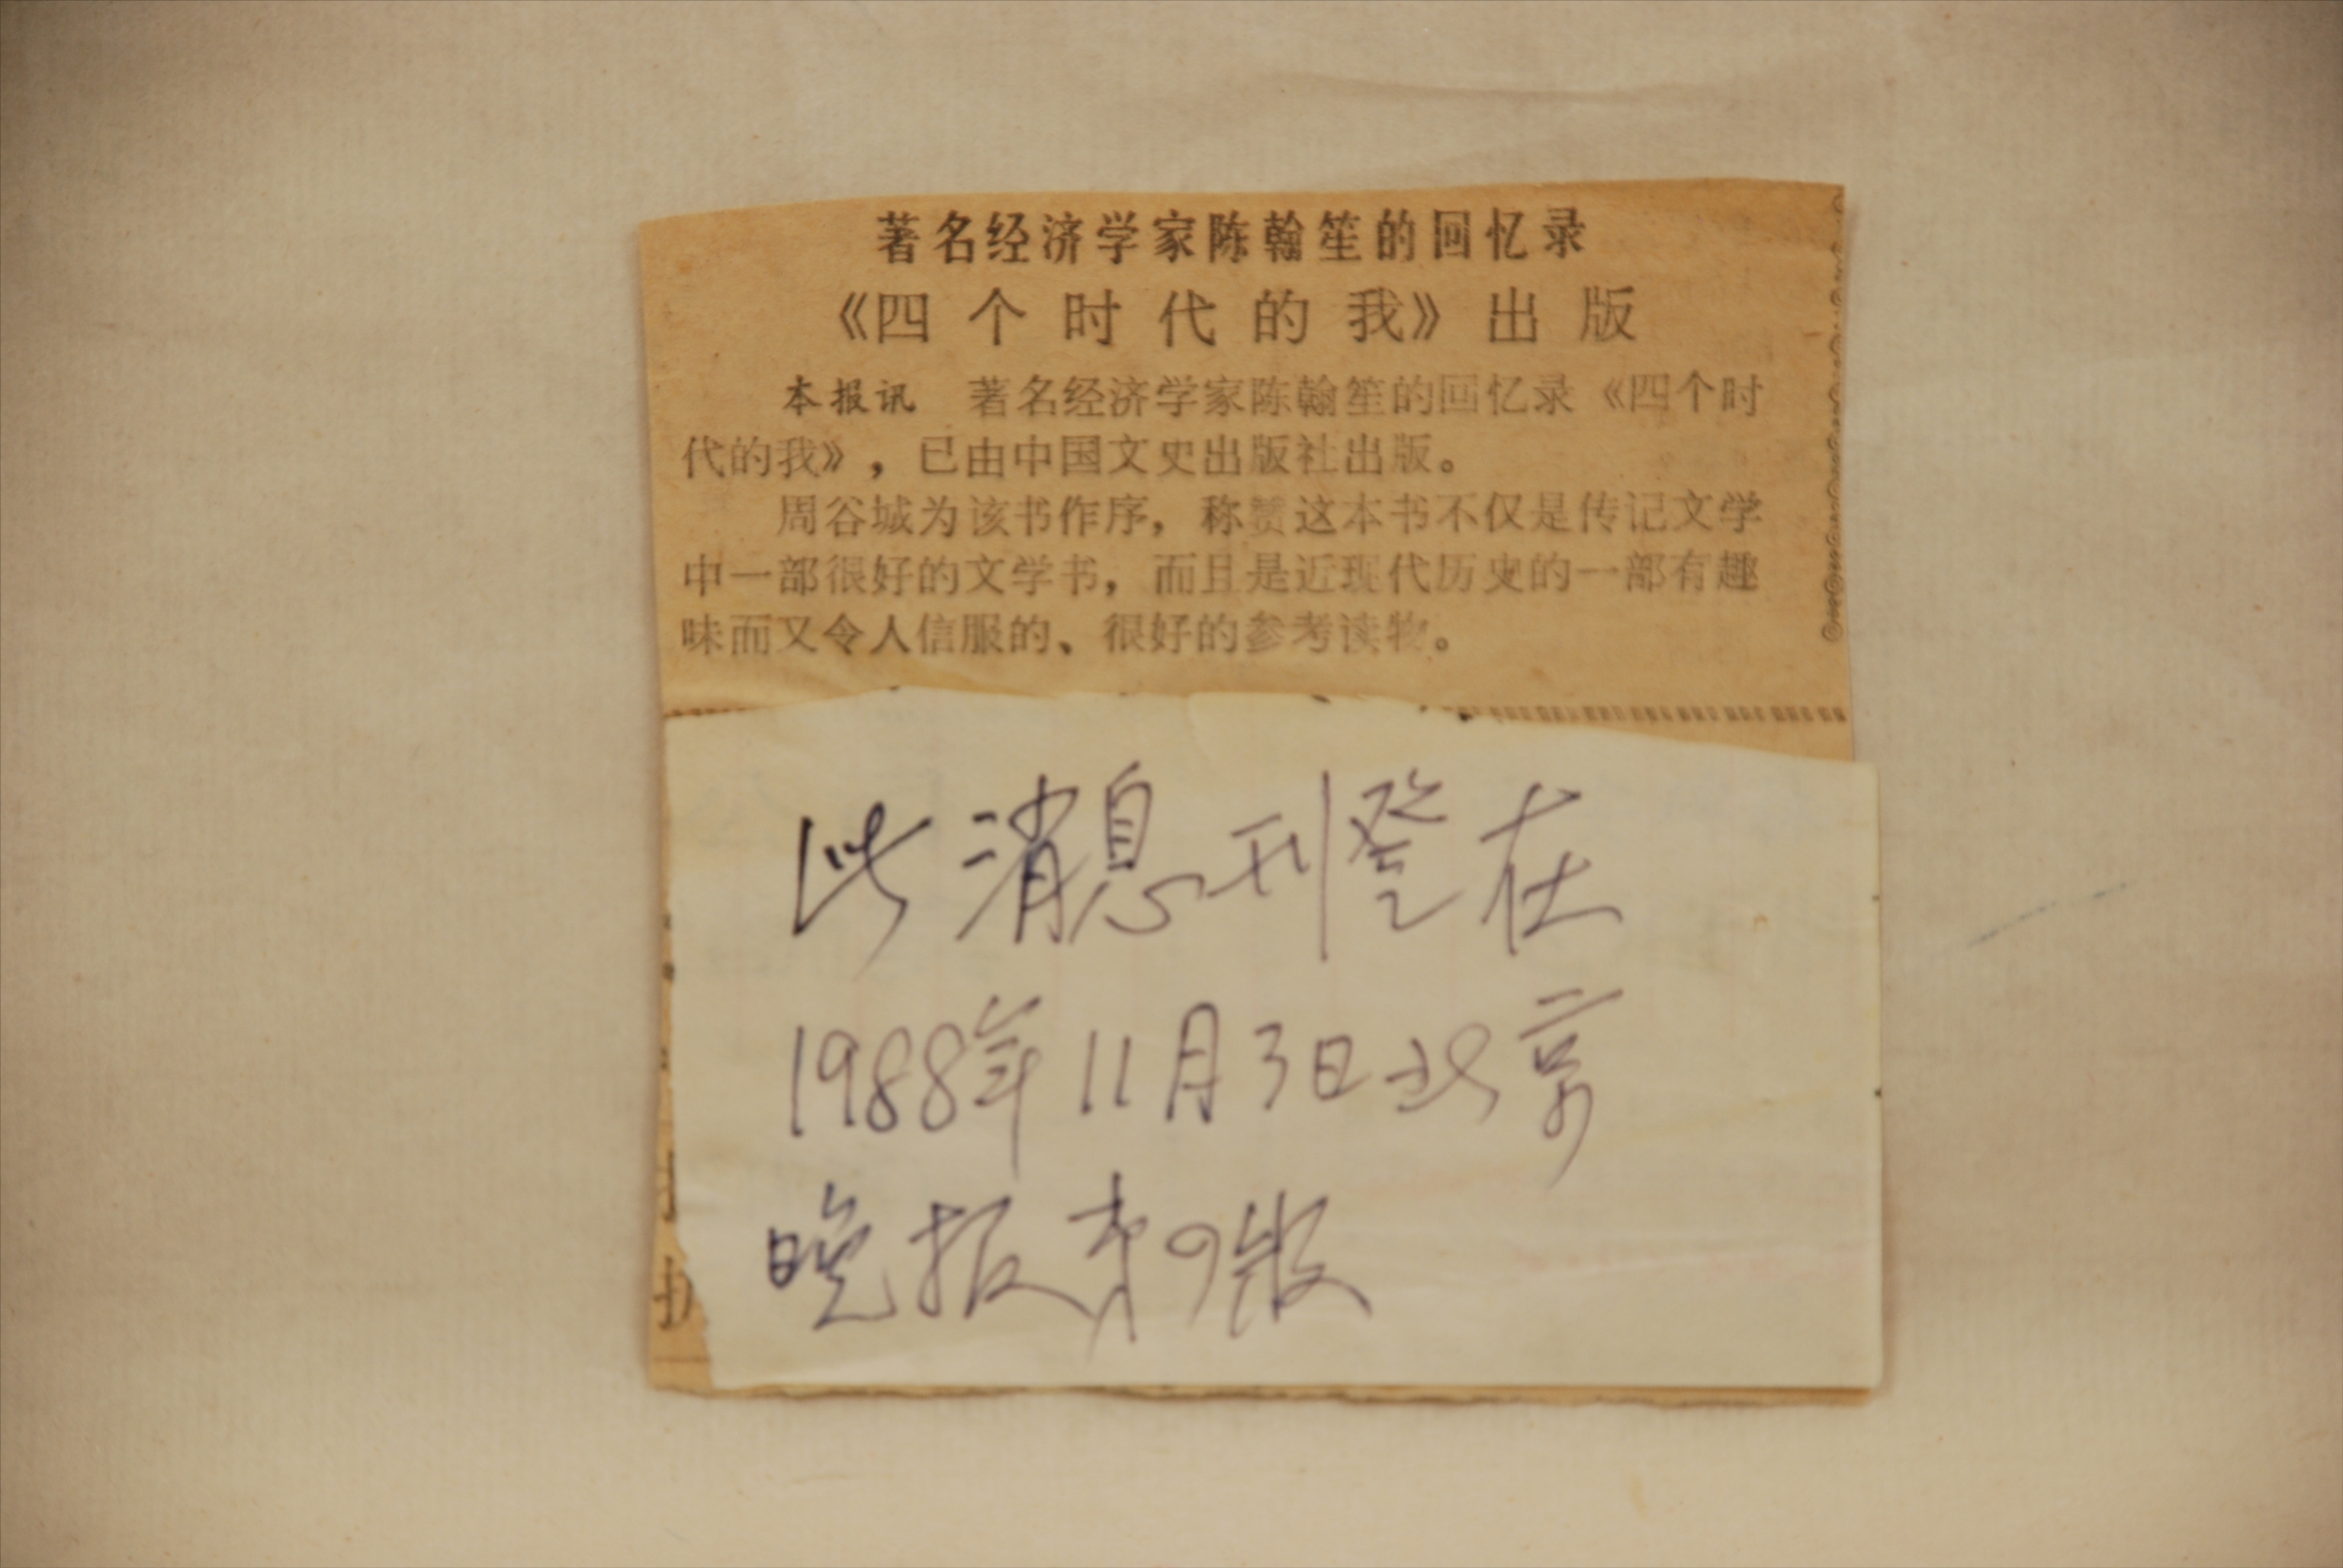 著名经济学家陈翰笙的回忆录
《四个时代的我》出版
本报讯　著名经济学家陈翰笙的回忆录《四个时
代的我》，已由中国文史出版社出版。
周谷城为该书作序，称赞这本书不仅是传记文学
中一部很好的文学书，而且是近现代历史的一部有趣
味而又令人信服的、很好的参考读物。
此消息刊登在
1988年11月3日北京
晚报第 版